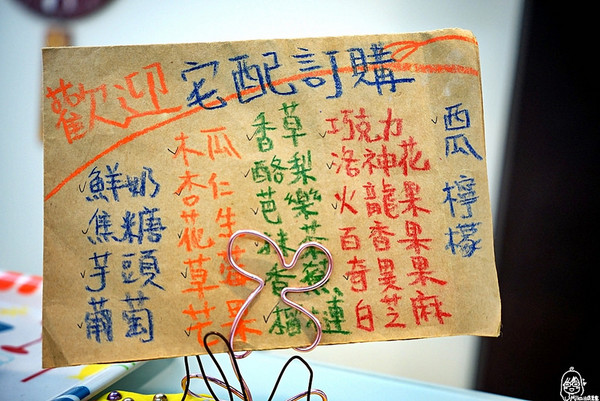 歡迎宅配訂購
鮮奶
焦糖
芋頭
葡萄
木瓜
杏仁
花生
草莓
芒果
香草
酪梨
芭樂
抹茶
香蕉
榴槤
巧克力
洛神花
火龍果
百香果
奇異果
白芝麻
西瓜
檸檬